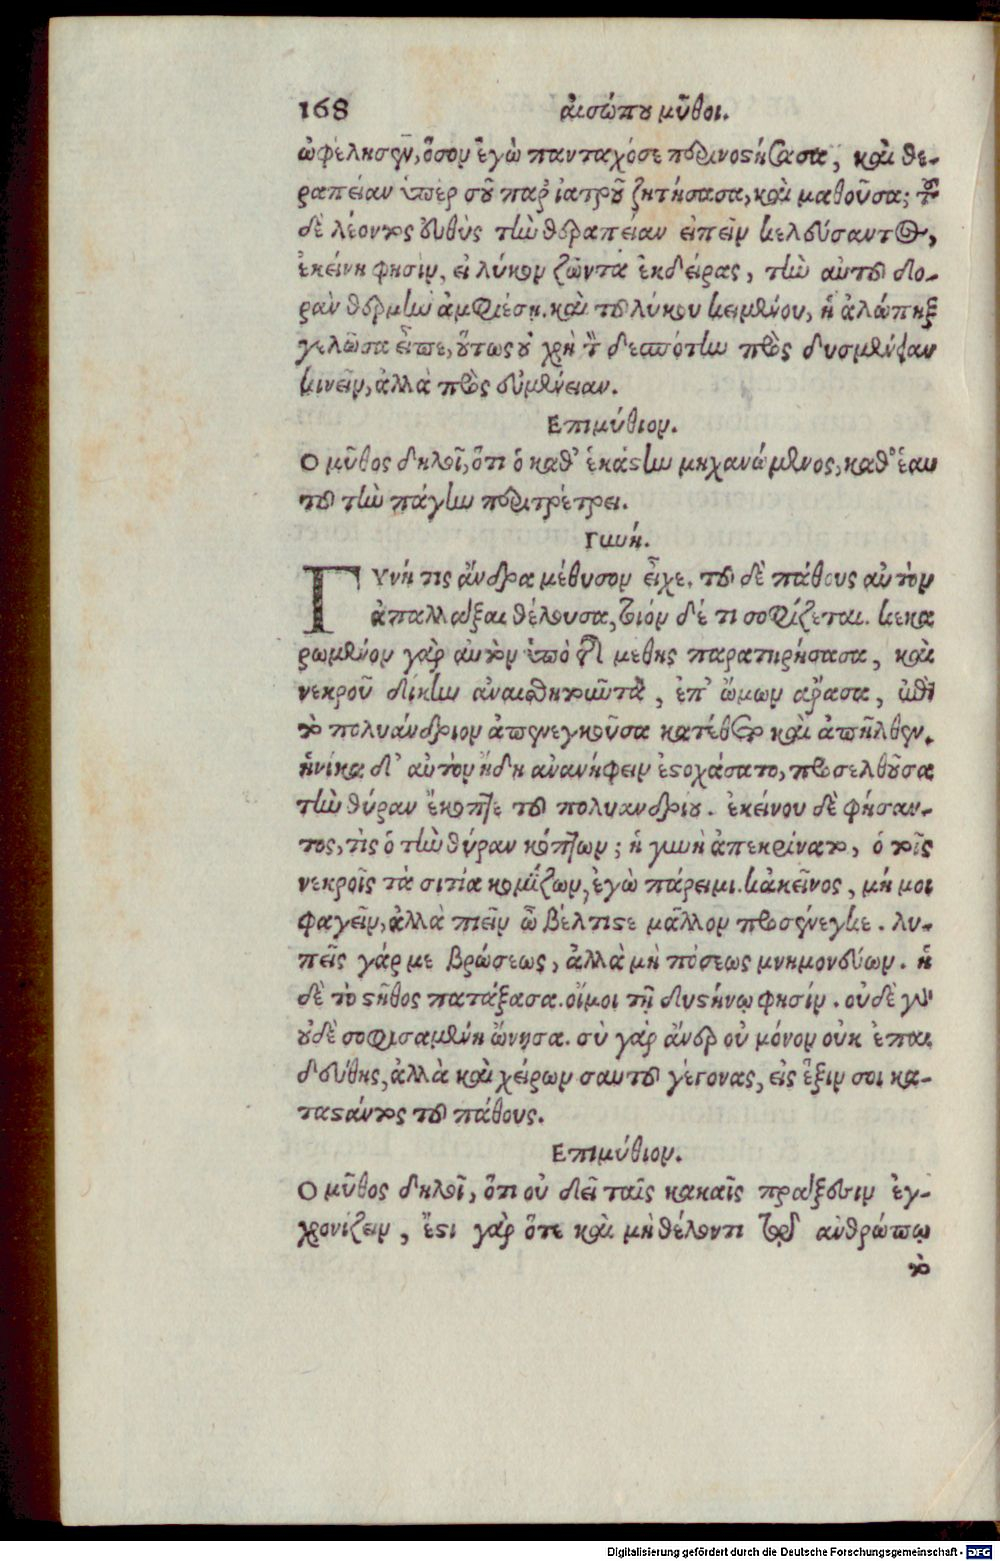 168 αἰσώπου μῦθοι.
ὠφέλησεν, ὅσον ἐγὼ πανταχόσε περινοστήσασα, καὶ θε-
ραπείαν ὑπὲρ σοῦ παρ' ἰατροῦ ζητήσασα, καὶ μαθοῦσα; τοῦ
δὲ λέοντος εὐθὺς τὴν θεραπείαν εἰπεῖν κελεύσαντος,
ἐκείνη φησὶν, εἰ λύκον ζῶντα ἐκδείρας, τὴν αὐτοῦ δο-
ρὰν θερμὴν ἀμφιέσῃ. καὶ τοῦ λύκου κειμένου, ἡ ἀλώπηξ
γελῶσα εἶπε, οὕτως οὐ χρὴ τὸν δεσπότην πρὸς δυσμένειαν
κινεῖν, ἀλλὰ πρὸς εὐμένειαν.
Επιμύθιον.
Ο μῦθος δηλοῖ, ὅτι ὁ καθ' ἑκάστην μηχανώμενος, καθ' ἑαυ
τοῦ τὴν πάγην περιτρέπει.
Γυνή.
ΓΥνή τις ἄνδρα μέθυσον εἶχε. τοῦ δὲ πάθους αὐτὸν
ἀπαλλάξαι θέλουσα, τοιόν δέ τι σοφίζεται. κεκα
ρωμένον γὰρ αὐτὸν ὑπὸ τῆς μέθης παρατηρήσασα, καὶ
νεκροῦ δίκην ἀναισθητοῦντα, ἐπ' ὤμων ἄρασα, ἐπὶ
τὸ πολυάνδριον ἀπενεγκοῦσα κατέθετο καὶ ἀπῆλθεν.
ἡνίκα δ' αὐτὸν ἤδη ἀνανήφειν ἐστοχάσατο, προσελθοῦσα
τὴν θύραν ἔκοπτε τοῦ πολυανδρίου. ἐκείνου δὲ φήσαν-
τος, τὶς ὁ τὴν θύραν κόπτων; ἡ γυνὴ ἀπεκρίνατο, ὁ τοῖς
νεκροῖς τὰ σιτία κομίζων, ἐγὼ πάρειμι. κἀκεῖνος, μή μοι
φαγεῖν, ἀλλὰ πιεῖν ὦ βέλτιστε μᾶλλον προσένεγκε. λυ-
πεῖς γάρ με βρώσεως, ἀλλὰ μὴ πόσεως μνημονεύων. ἡ
δὲ τὸ στῆθος πατάξασα. οἴμοι τῇ δυστήνῳ φησίν. οὐδὲ γὰρ
οὐδὲ σοφισαμένη ὤνησα. σὺ γὰρ ἄνερ οὐ μόνον οὐκ ἐπαι
δεύθης, ἀλλὰ καὶ χείρων σαυτοῦ γέγονας, εἰς ἕξιν σοι κα-
ταστάντος τοῦ πάθους.
Επιμύθιον.
Ο μῦθος δηλοῖ, ὅτι οὐ δεῖ ταῖς κακαῖς πράξεσιν ἐγ-
χρονίζειν, ἔστι γὰρ ὅτε καὶ μὴ θέλοντι τῷ ἀνθρώπῳ
τὸ
Digitalisierung gefördert durch die Deutsche Forschungsgemeinschaft - DFG